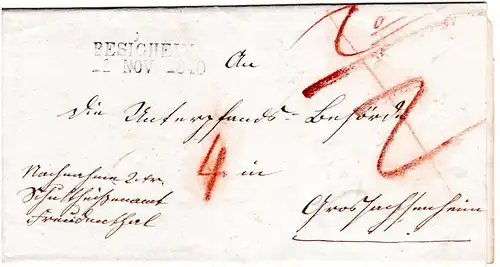 BESIGHEIM
11 NOV 1840
An
die Unterpfands-Behörde
in
Grossachsenheim
Nachnahme 2 xr.
Schultheißenamt
Freudenthal
4
2